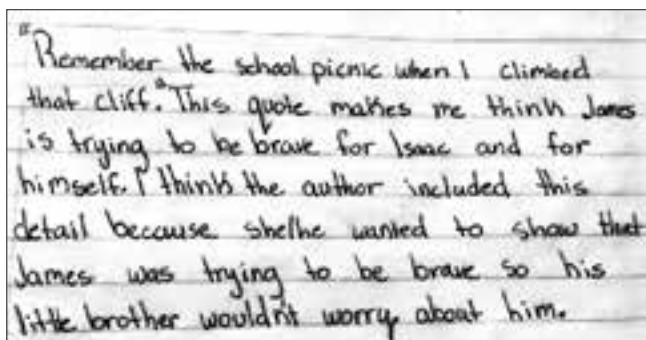 "Remember the school picnic when I climbed
that cliff." This quote makes me think James
is trying to be brave for Isaac and for
himself. I think the author included this
detail because she/he wanted to show that
James was trying to be brave so his
little brother wouldn't worry about him.